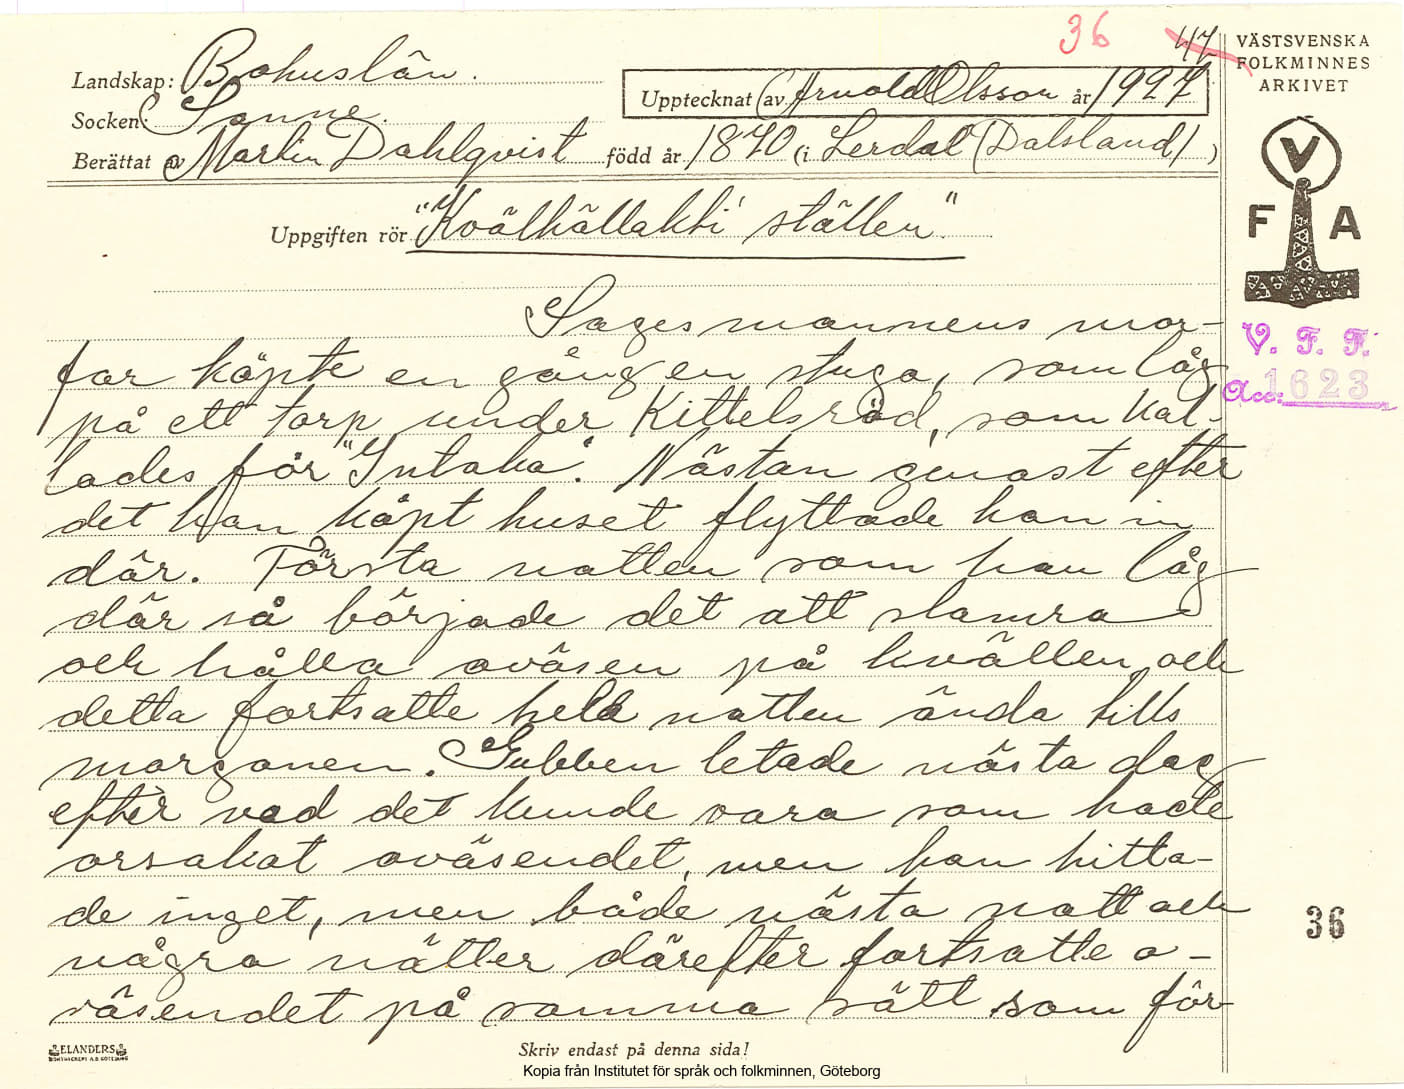 36 47
VÄSTSVENSKA
FOLKMINNES
ARKIVET
Landskap: Bohuslän.
Upptecknat av Arnold Olsson år 1927
Socken: Sanne.
Berättat av Martin Dahlqvist född år 1870 (i Lerdal (Dalsland) )
Uppgiften rör "Kvälhällakti' ställen"
V
F A
V. F. F.
Acc: 1623
Sagesmannens mor-
far köpte en gång en stuga, som låg
på ett torp under Kittelsröd, som kal-
lades för "Intaka". Nästan genast efter
det han köpt huset flyttade han in
där. Första natten som han låg
där så började det att slamra
och hålla oväsen på kvällen och
detta fortsatte hela natten ända tills
morgonen. Gubben letade nästa dag
efter vad det kunde vara som hade
orsakat oväsendet, men han hitta-
de inget, men både nästa natt och
några nätter därefter fortsatte o-
väsendet på samma sätt som för
36
ELANDERS
Skriv endast på denna sida!
Kopia från Institutet för språk och folkminnen, Göteborg